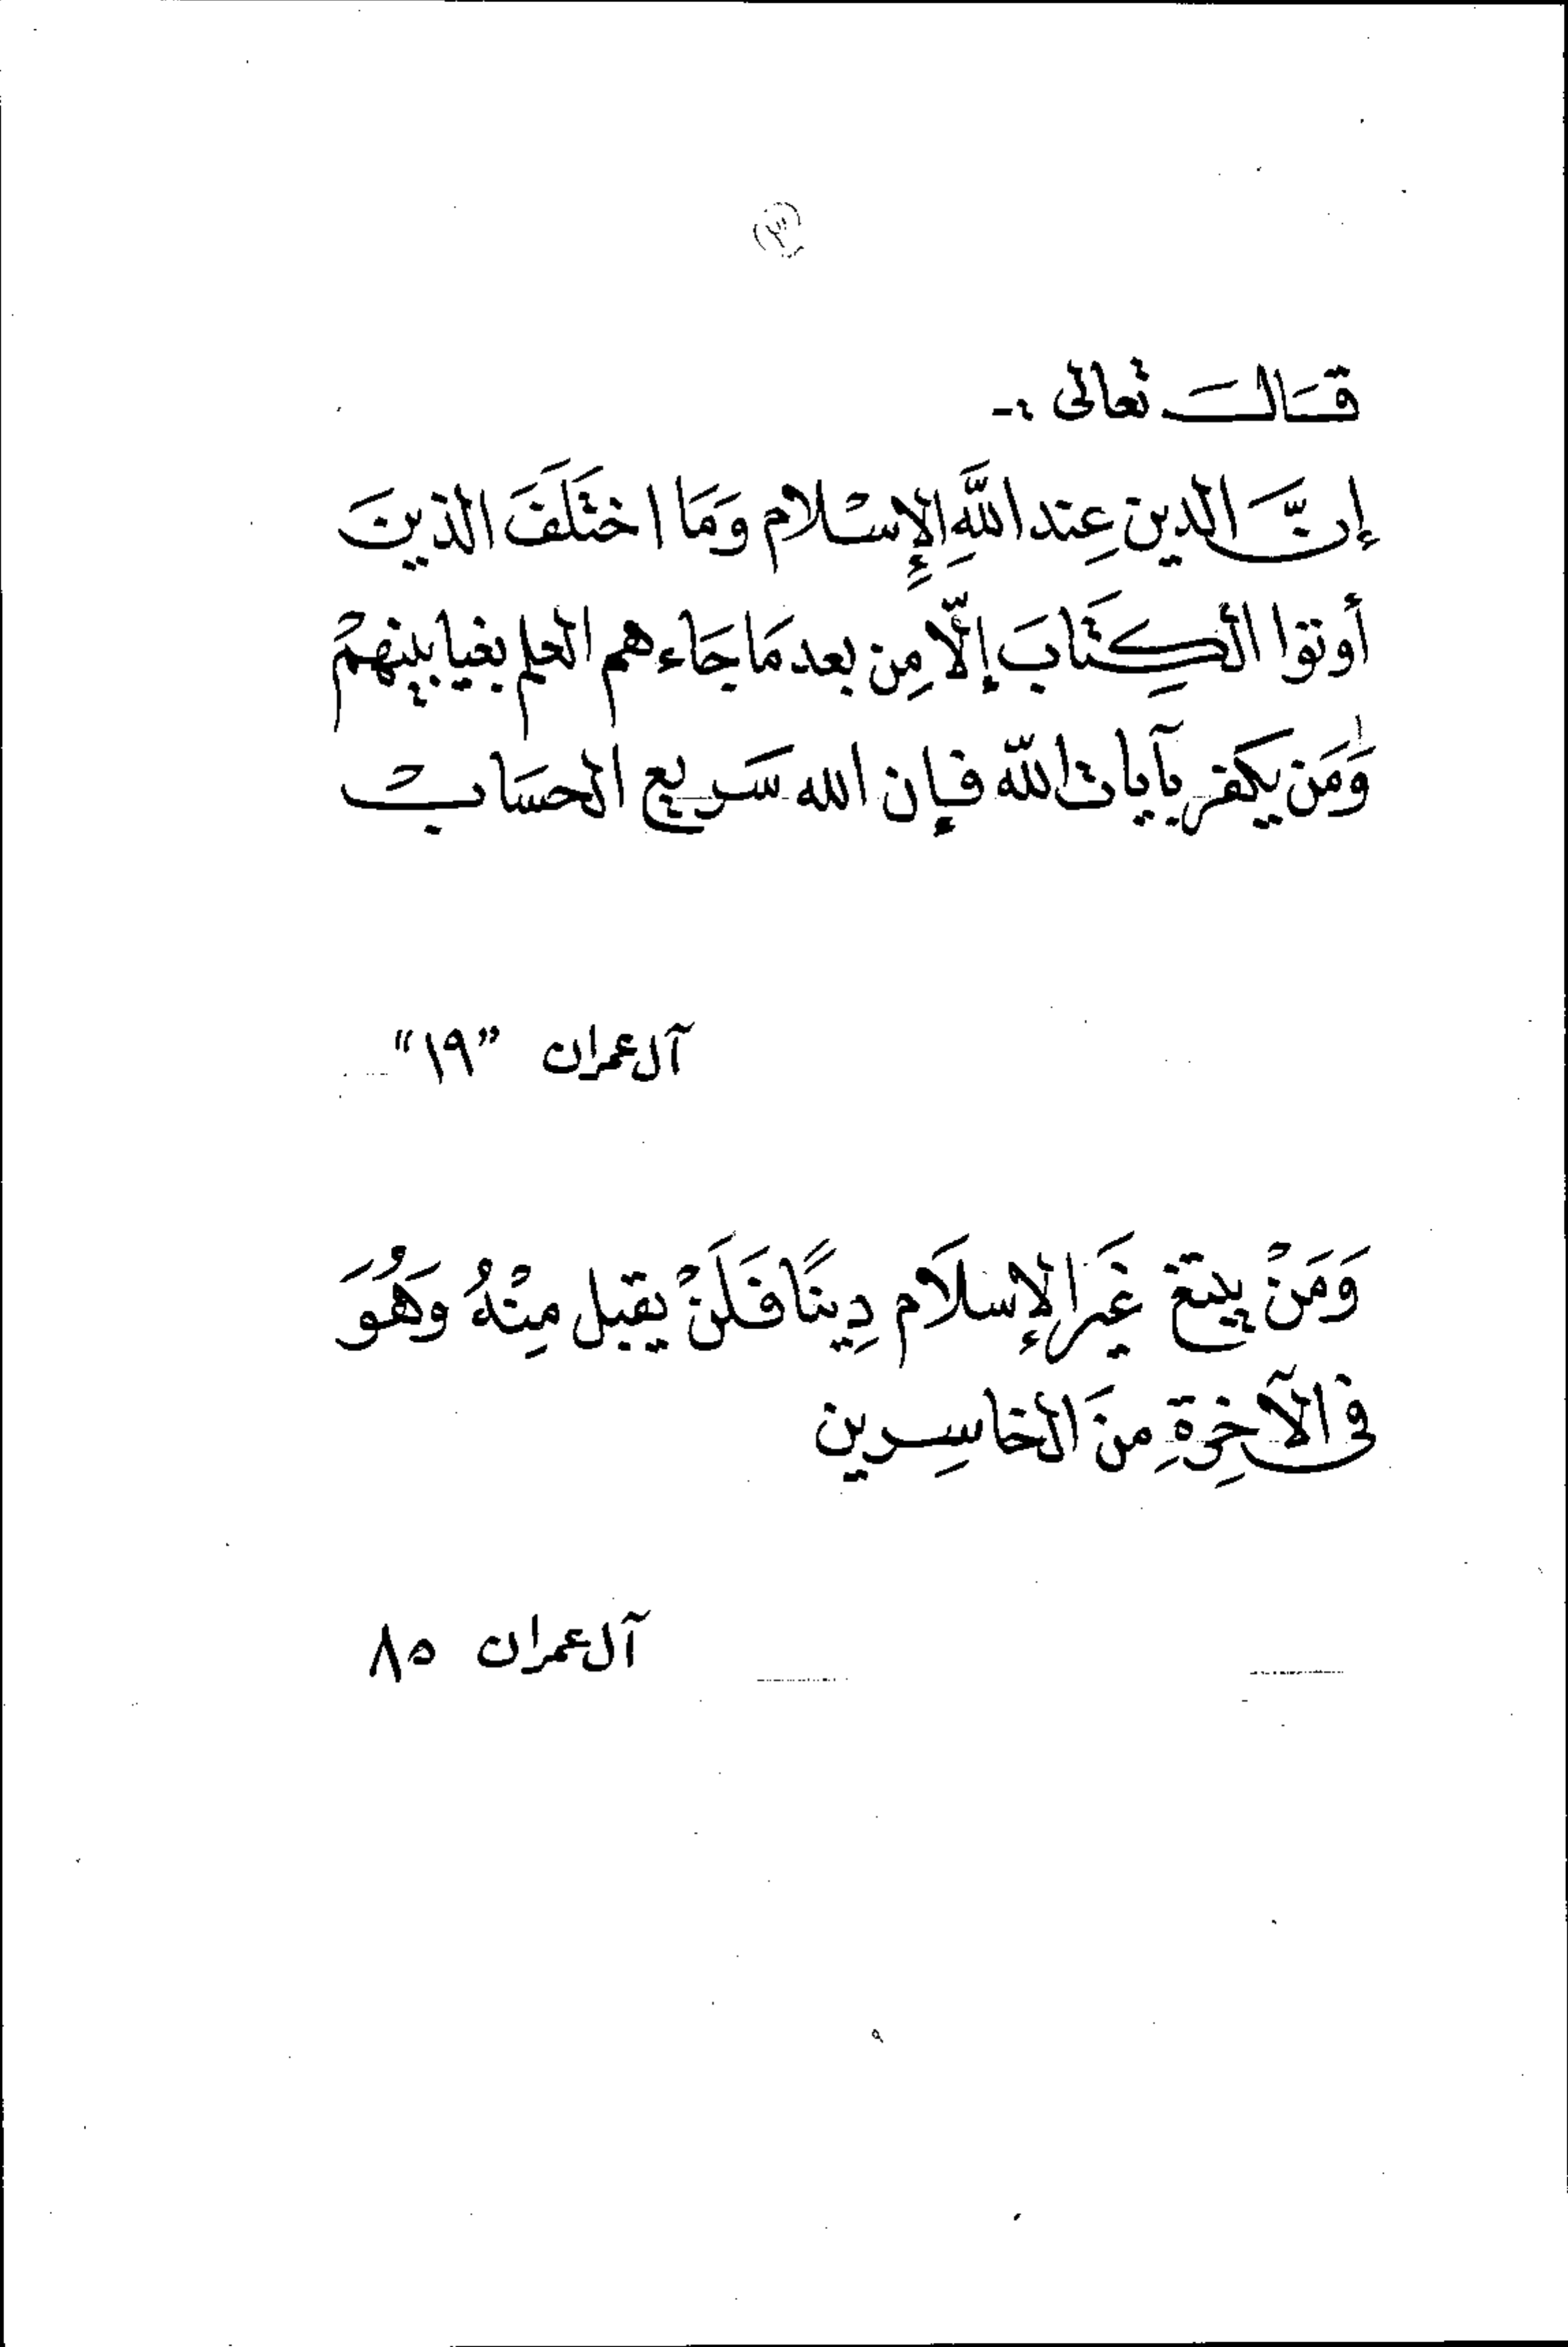 (٣)
قَالَ تعالى :-
إنَّ الدين عِند اللَّهِ الإِسْلام وَمَا اختَلَفَ الذينَ
أوتوا الكِتَابَ إلّا مِن بعد مَا جَاءهم العلم بغيا بينهمْ
وَمَن يكفر بآيات اللّه فإن الله سَريع الحسَابْ
آل عمران "١٩"
وَمَنْ يبتغ غَير الإسلَام دِينًا فَلَنْ يقبل مِنْهُ وَهُوَ
فى الآخِرةِ منَ الخاسِرين
آل عمران ٨٥